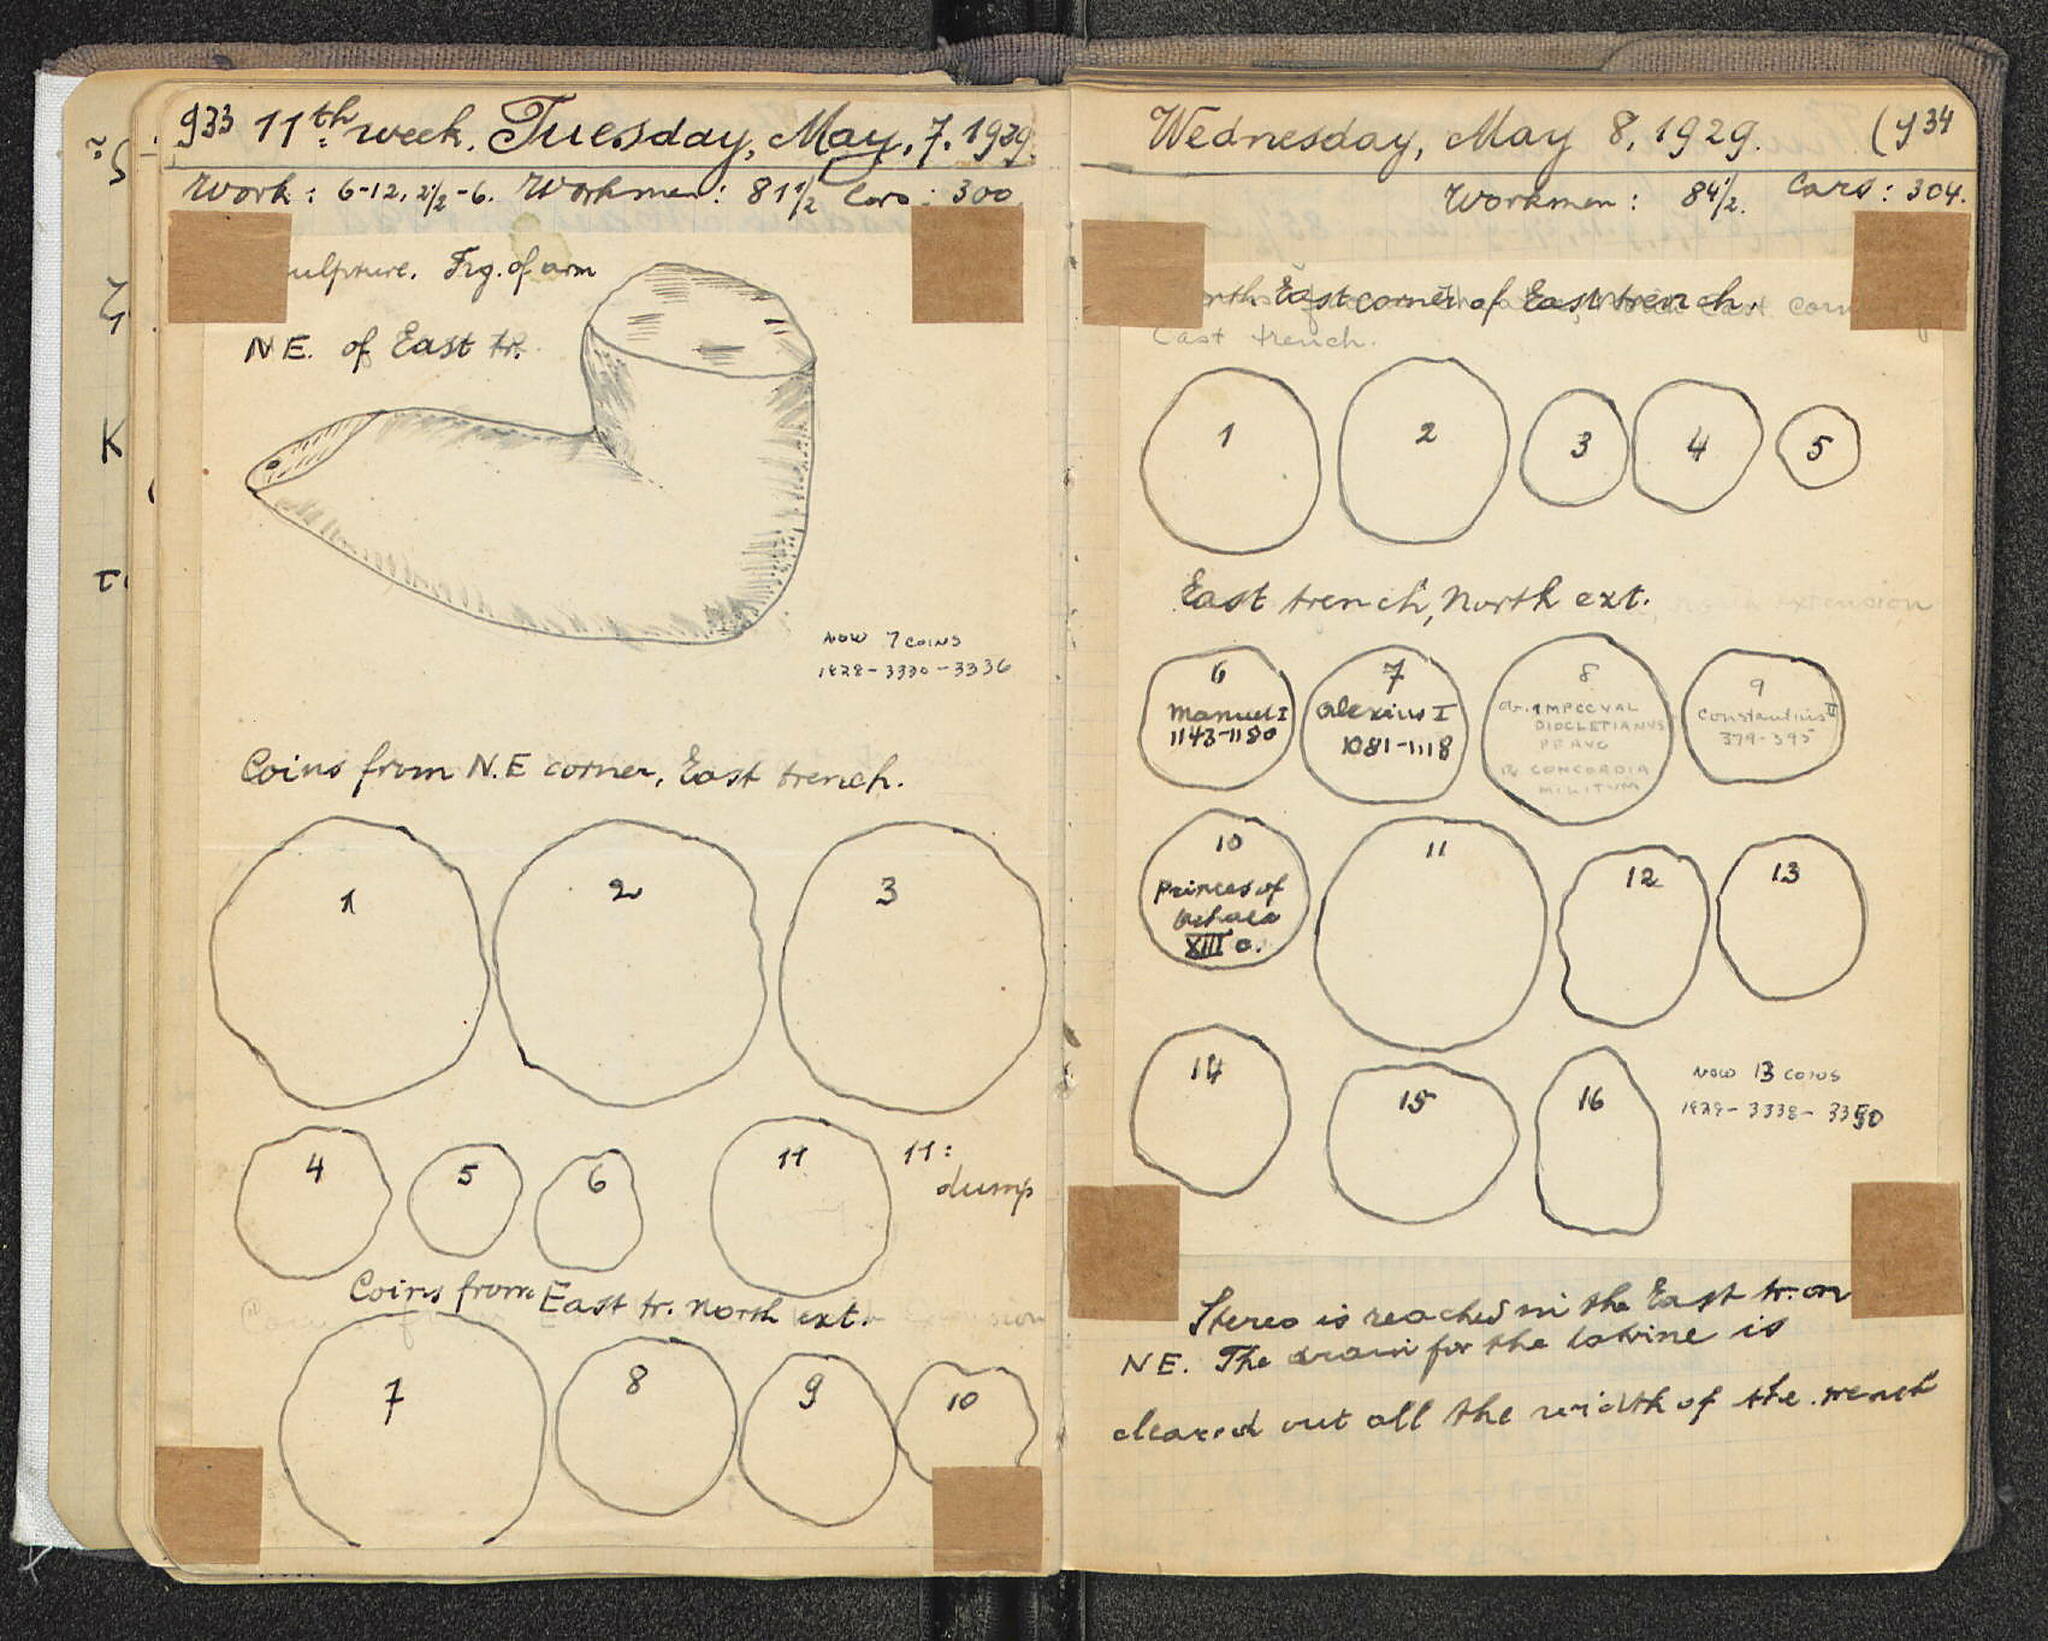 933 11th week. Tuesday, May, 7. 1929.
Work: 6-12, 2½-6. Workmen: 81½ Cars: 300
ulpture. Frg. of arm
N E. of East tr.
NOW 7 COINS
1929-3330-3336
Coins from N.E corner, East trench.
1
2
3
4
5
6
11
11:
dump
Coins from East tr. north ext.
7
8
9
10
Wednesday, May 8, 1929. 934
Workmen: 84½. Cars: 304.
East corner of East trench.
East trench.
1
2
3
4
5
East trench, North ext.
6
Manuel I
1143-1180
7
Alexius I
1081-1118
8
DIOCLETIANUS
CONCORDIA
MILITUM
9
Constantius II
379-395
10
Princes of
Achaea
XIII c.
11
12
13
14
15
16
NOW 13 COINS
1929-3338-3350
Stereo is reached in the East tr. on
NE. The drain for the latrine is
cleared out all the width of the trench